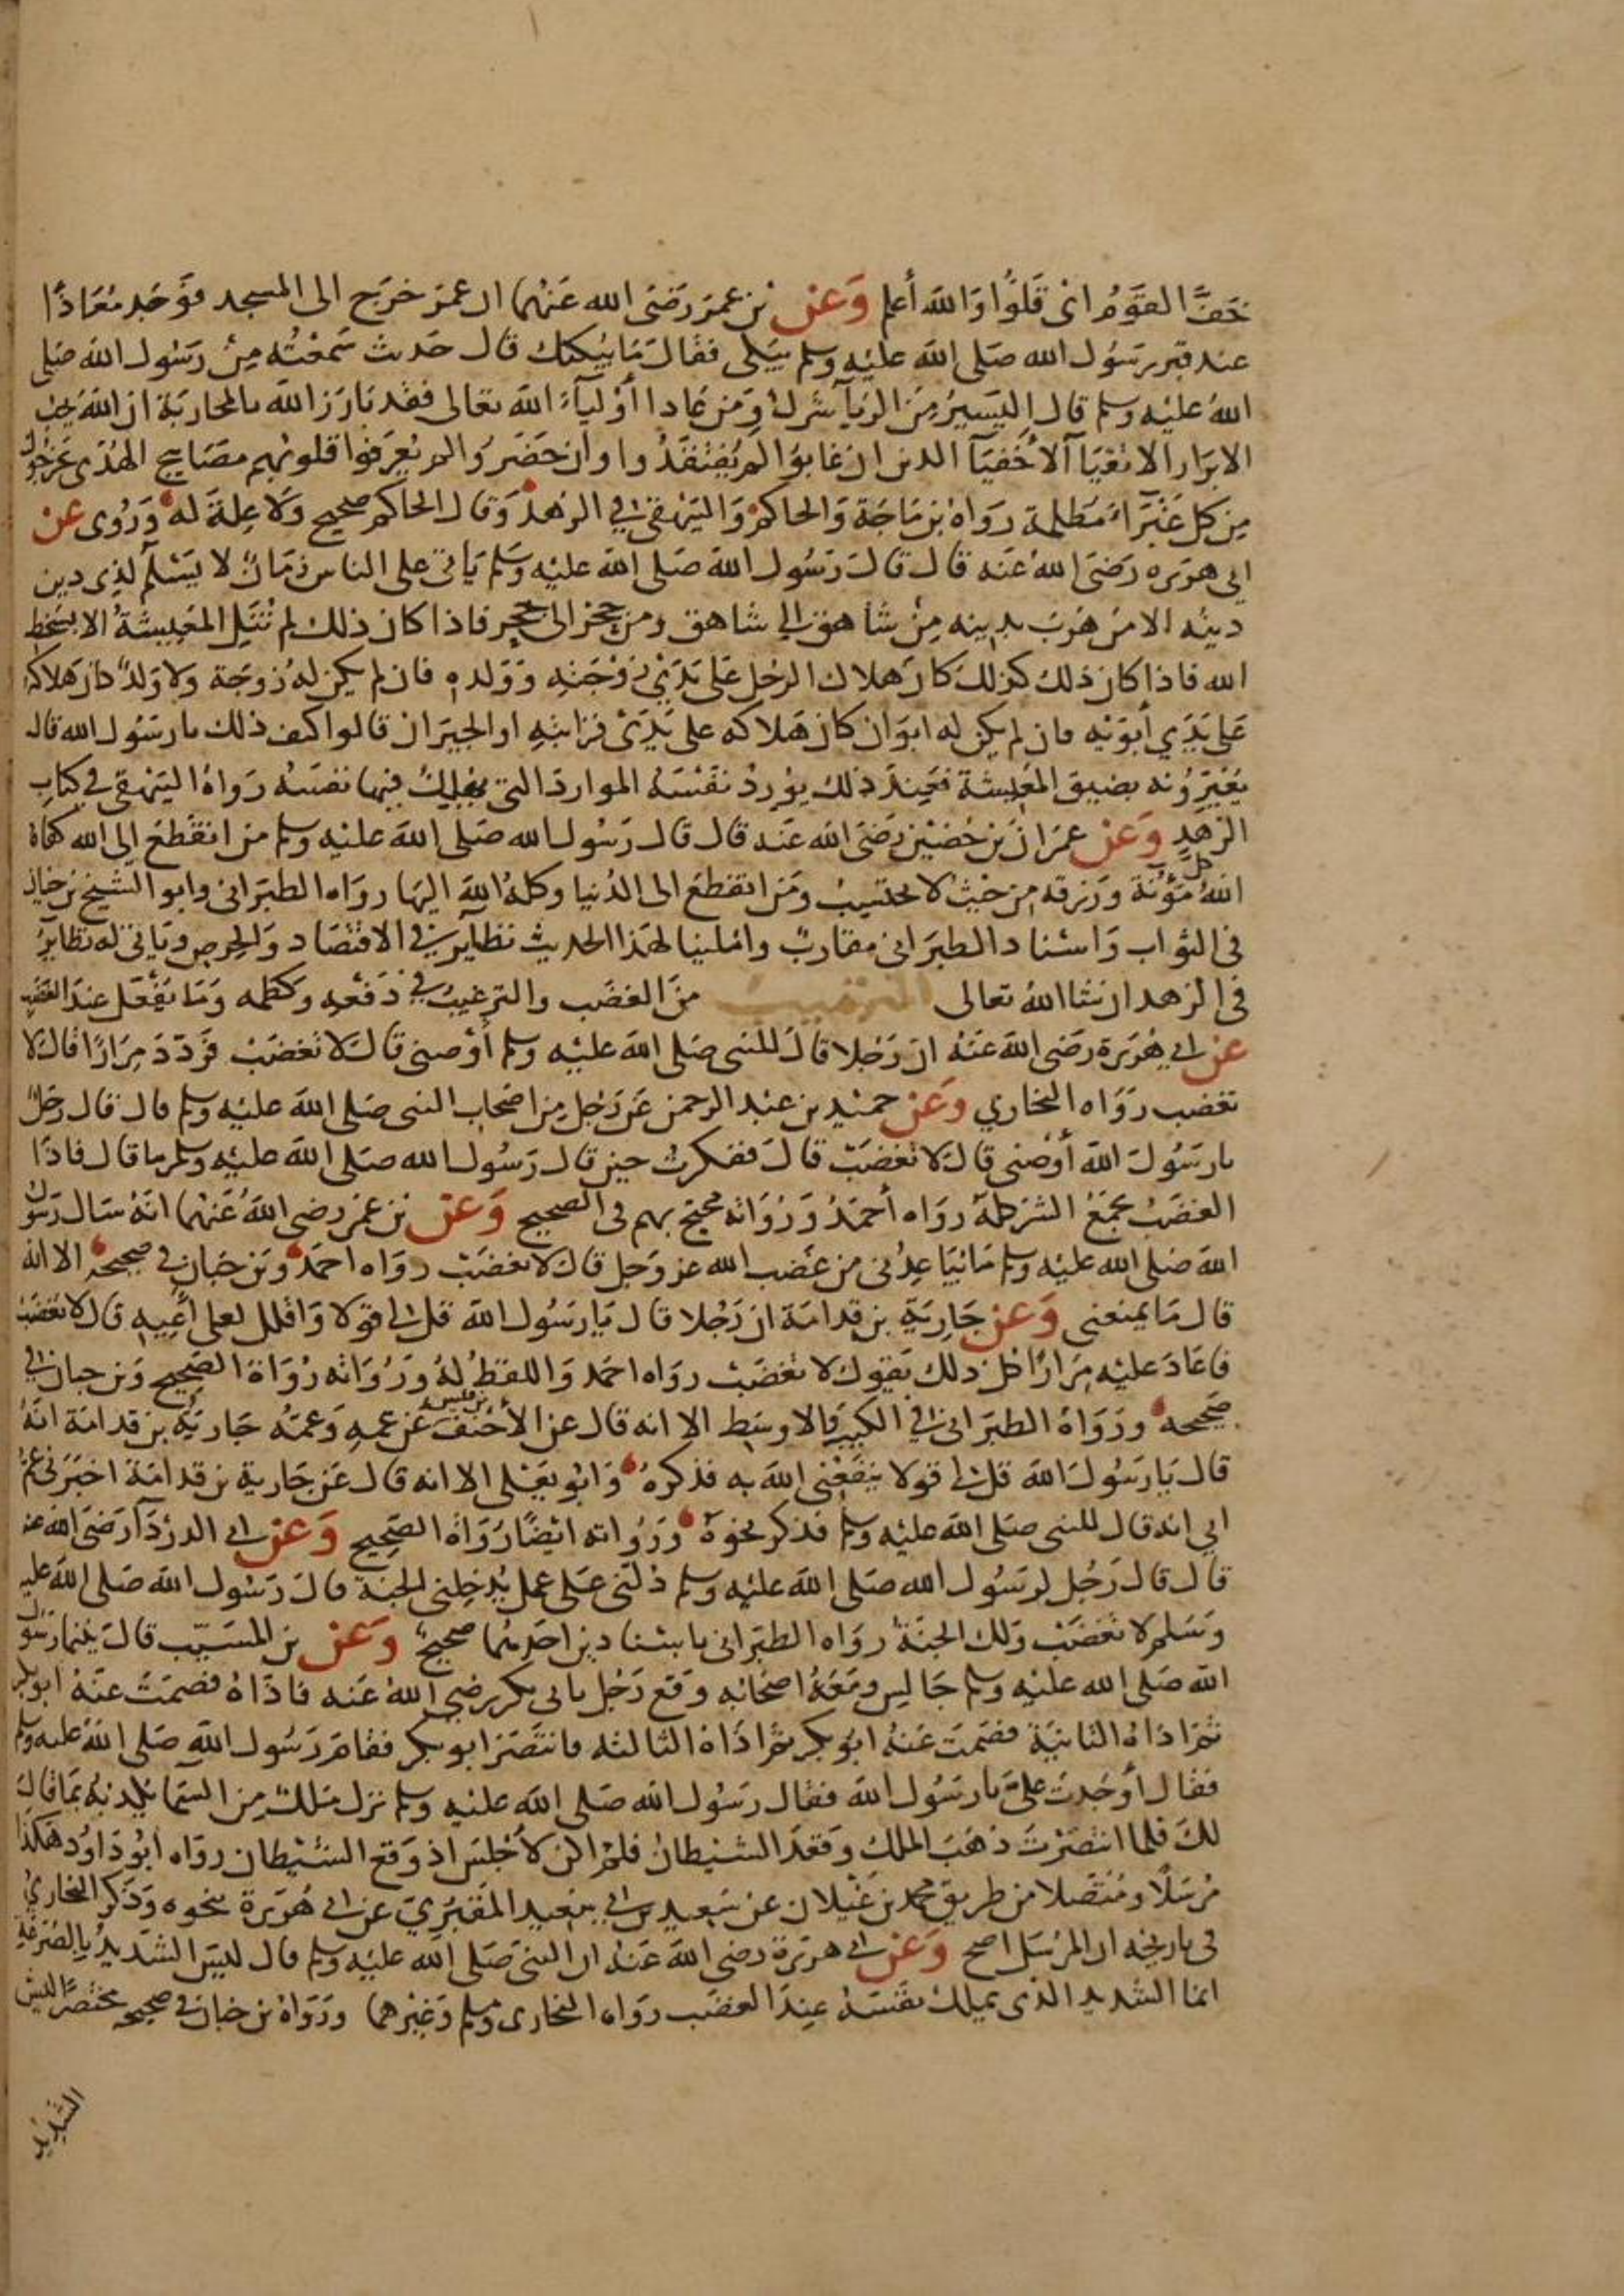 خفَّ القوم اى قلوا والله أعلم وعن بن عمر رضى الله عنهما ان عمر خرج الى المسجد فوجد معاذًا
عند قبر رسول الله صلى الله عليه وسلم يبكى فقال ما يبكيك قال حديث سمعته من رسول الله صلى
الله عليه وسلم قال اليسير من الريآ شرك ومن عادا أوليآء الله تعالى فقد بارز الله بالمحاربة ان الله يحب
الابرار الاتقيآ الأخفيآ الدين ان غابوا لم يفتقدوا وان حضروا لم يعرفوا قلوبهم مصابيح الهدى يخرجون
من كل غبرآء مظلمة رواه بن ماجة والحاكم والبيهقي في الزهد وقال الحاكم صحيح ولا علة له وروى عن
ابي هريره رضى الله عنه قال قال رسول الله صلى الله عليه وسلم ياتى على الناس زمان لا يسلم لذى دين
دينه الا من هرب بدينه من شاهق الى شاهق ومن جحر الى جحر فاذا كان ذلك لم تنل المعيشة الا بسخط
الله فاذا كان ذلك كذلك كان هلاك الرجل على يدي زوجته وولده فان لم يكن له زوجة ولا ولد كان هلاكه
على يدي أبويه فان لم يكن له ابوان كان هلاكه على يدى قرابته او الجيران قالوا كيف ذلك يا رسول الله قال
يعيرونه بضيق المعيشة فعند ذلك يورد نفسه الموارد التى يهلك فيها نفسه رواه البيهقى في كتاب
الزهد وعن عمران بن حصين رضى الله عنه قال قال رسول الله صلى الله عليه وسلم من انقطع الى الله كفاه
الله كل مؤنة ورزقه من حيث لا يحتسب ومن انقطع الى الدنيا وكله الله اليها رواه الطبرانى وابو الشيخ بن حبان
فى الثواب واسناد الطبرانى مقارب واملينا لهذا الحديث نظآير في الاقتصاد والحرص وياتى له نظاير
فى الزهد ان شا الله تعالى الترهيب من الغضب والترغيب في دفعه وكظمه وما يفعل عند الغضب
عن ابي هريرة رضى الله عنه ان رجلا قال للنبى صلى الله عليه وسلم أوصنى قال لا تغضب فردد مرارًا قال لا
تغضب رواه البخاري وعن حميد بن عبد الرحمن عن رجل من اصحاب النبى صلى الله عليه وسلم قال قال رجل
يا رسول الله أوصنى قال لا تغضب قال ففكرت حين قال رسول الله صلى الله عليه وسلم ما قال فاذا
الغضب يجمع الشر كله رواه أحمد ورواته محتج بهم فى الصحيح وعن بن عمر رضى الله عنهما انه سال رسول
الله صلى الله عليه وسلم ما يباعدنى من غضب الله عز وجل قال لا تغضب رواه احمد وبن حبان في صحيحه الا انه
قال ما يمنعنى وعن جارية بن قدامة ان رجلا قال يا رسول الله قل لى قولا واقلل لعلى أعيه قال لا تغضب
فاعاد عليه مرارًا كل ذلك يقول لا تغضب رواه احمد واللفظ له ورواته رواة الصحيح وبن حبان في
صحيحه ورواه الطبرانى في الكبير والاوسط الا انه قال عن الأحنف بن قيس عن عمه وعمه جارية بن قدامة انه
قال يا رسول الله قل لى قولا ينفعنى الله به فذكره وابو يعلى الا انه قال عن جارية بن قدامة اخبرنى عم
ابي انه قال للنبى صلى الله عليه وسلم فذكر نحوه ورواته ايضًا رواة الصحيح وعن ابى الدردآ رضى الله عنه
قال قال رجل لرسول الله صلى الله عليه وسلم دلنى على عمل يدخلنى الجنة قال رسول الله صلى الله عليه
وسلم لا تغضب ولك الجنة رواه الطبرانى باسنادين احدهما صحيح وعن بن المسيب قال بينما رسول
الله صلى الله عليه وسلم جالس ومعه اصحابه وقع رجل بابى بكر رضى الله عنه فاذاه فصمت عنه ابو بكر
ثم اذاه الثانية فصمت عنه ابو بكر ثم اذاه الثالثه فانتصر ابو بكر فقام رسول الله صلى الله عليه وسلم
فقال أوجدت علىّ يا رسول الله فقال رسول الله صلى الله عليه وسلم نزل ملك من السما يكذبه بما قال
لك فلما انتصرت ذهب الملك وقعد الشيطان فلم اكن لأجلس اذ وقع الشيطان رواه ابو داود هكذا
مرسلًا ومتصلا من طريق محمد بن غيلان عن سعيد بن ابى سعيد المقبري عن ابى هريرة بنحوه وذكر البخاري
فى تاريخه ان المرسل اصح وعن ابى هريرة رضى الله عنه ان النبى صلى الله عليه وسلم قال ليس الشديد بالصرعة
انما الشديد الذى يملك نفسه عند الغضب رواه البخارى ومسلم وغيرهما ورواه بن حبان في صحيحه مختصرًا ليس
الشديد